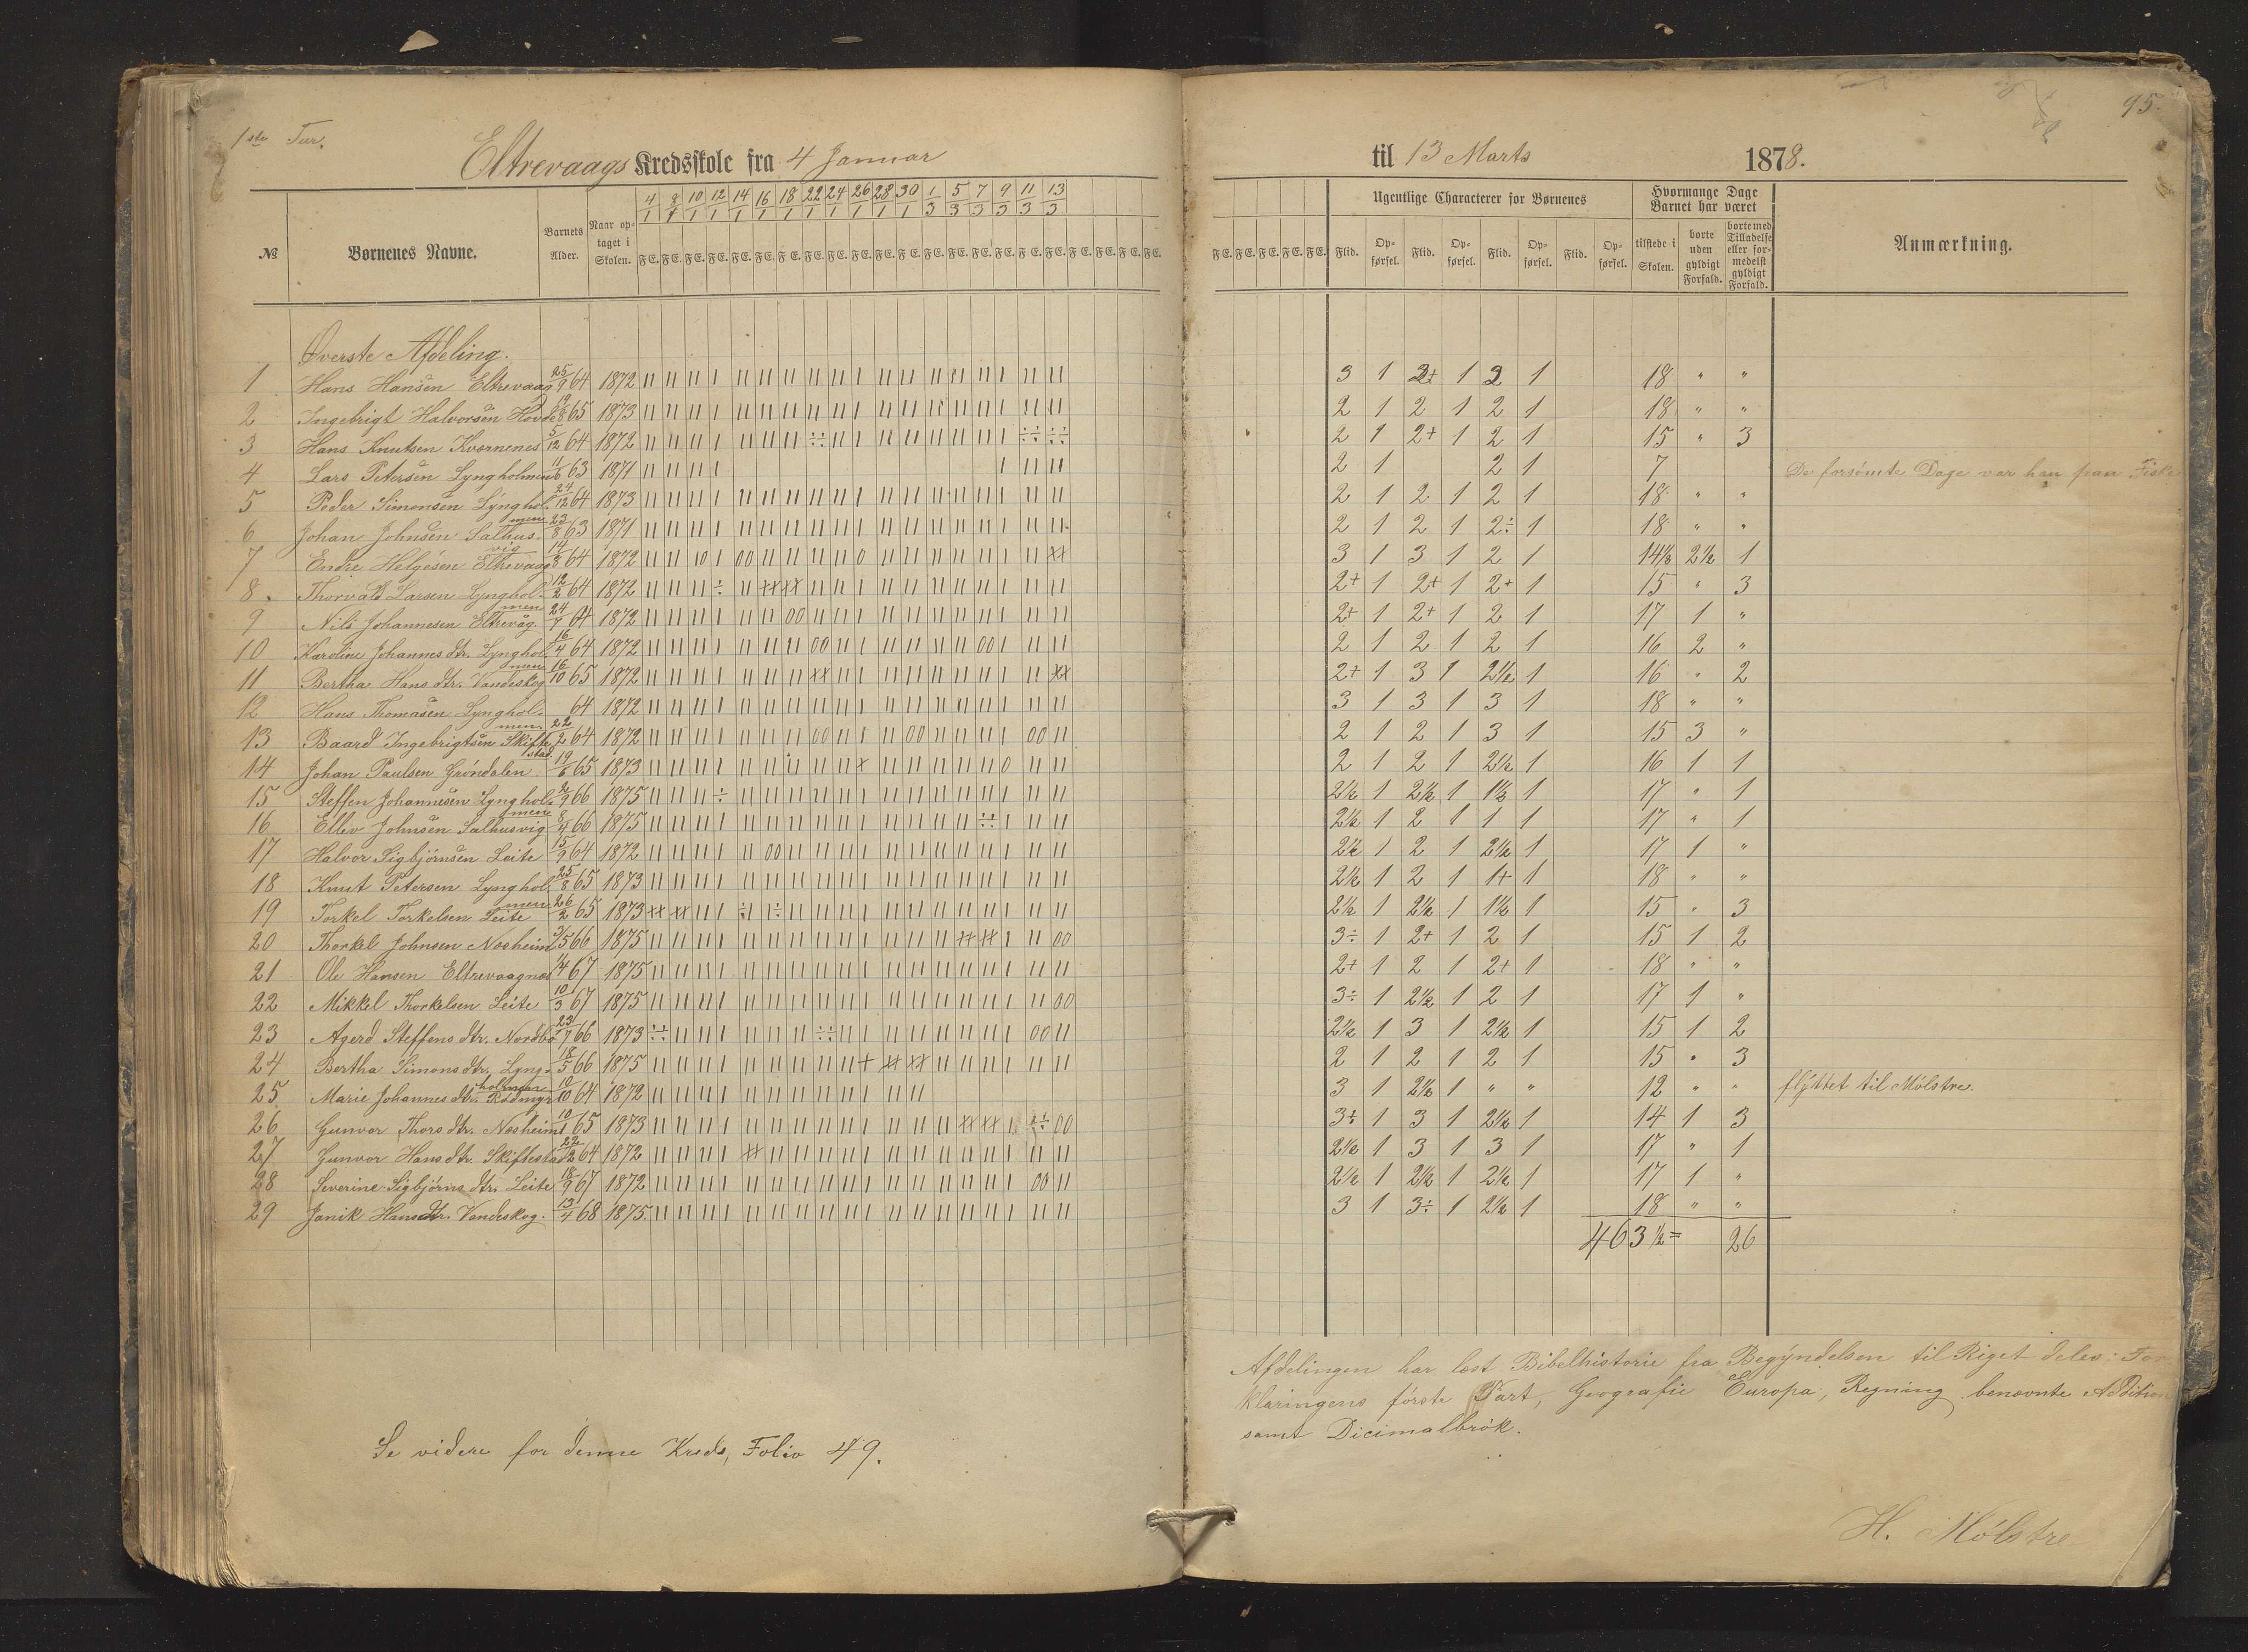 1ste Tur.
Eltrevaags Kredsskole fra 4 Januar
4/1 8/1 10/1 12/1 14/1 16/1 18/1 22/1 24/1 26/1 28/1 30/1 1/3 5/3 7/3 9/3 11/3 13/3
№ Børnenes Navne. Barnets Alder. Naar optaget i Skolen. F E. F E. F E. F E. F E. F E. F E. F E. F E. F E. F E. F E. F E. F E. F E. F E. F E. F E. F E. F E. F E. F E.
Øverste Afdeling.
1 Hans Hansen Eltrevaag 25/9 64 1872
2 Ingebrigt Halvorsen Hovde 19/8 65 1873
3 Hans Knutsen Kvernenes 5/12 64 1872
4 Lars Petersen Lyngholmen 11/6 63 1871
5 Peder Simonsen Lyngholmen 24/12 64 1873
6 Johan Johnsen Salhusvig 23/8 63 1871
7 Endre Helgesen Eltrevaag 14/8 64 1872
8. Thorvald Larsen Lyngholmen 12/2 64 1872
9 Nils Johannesen Eltrevåg 24/7 64 1872
10 Karoline Johannes dtr. Lyngholmen 16/4 64 1872
11 Bertha Hans dtr. Vandeskog 16/10 65 1872
12 Hans Thomasen Lynghol- 64 1872
men
13 Baard Ingebrigtsen Skiftestad 22/2 64 1872
14 Johan Paulsen Gröndalen 19/6 65 1873
15 Steffen Johannesen Lyngholmen 2/9 66 1875
16 Ellev Johnsen Salhusvig 8/4 66 1875
17 Halvor Sigbjörnsen Leite 15/9 64 1872
18 Knut Petersen Lyngholmen 25/8 65 1873
19 Torkel Torkelsen Leite 26/2 65 1873
20 Thorkel Johnsen Nosheim 3/5 66 1875
21 Ole Hansen Eltrevaagnes 67 1875
22 Mikkel Thorkelsen Leite 10/3 67 1875
23 Agerd Steffens dtr. Nordbö 23/7 66 1873
24 Bertha Simons dtr. Lyngholmen 18/5 66 1875
25 Marie Johannes dtr. Rödmyr 10/10 64 1872
26 Gunvor Thors dtr. Nosheim 10/1 65 1873
27 Gunvor Hans dtr. Skiftestad 22/2 64 1872
28 Severine Sigbjörns dtr. Leite 18/9 67 1872
29 Janik Hans dtr. Vandeskog. 13/4 68 1875.
Se videre for denne Kreds, Folio 49.
95.
til 13 Marts 1878.
F E. F E. F E. F E. F E. Ugentlige Characterer for Børnenes Hvormange Dage Barnet har været
Flid. Opførsel. Flid. Opførsel. Flid. Opførsel. Flid. Opførsel. tilstede i Skolen. borte uden gyldigt Forfald. borte med Tilladelse eller formedelst gyldigt Forfald. Anmærkning.
3 1 2+ 1 2 1 18 " "
2 1 2 1 2 1 18 " "
2 1 2+ 1 2 1 15 " 3
2 1 2 1 7 De forsömte Dage var han paa Fiske
2 1 2 1 2 1 18 " "
2 1 2 1 2÷ 1 18 " "
3 1 3 1 2 1 14½ 2½ 1
2+ 1 2+ 1 2+ 1 15 " 3
2+ 1 2+ 1 2 1 17 1 "
2 1 2 1 2 1 16 2 "
2+ 1 3 1 2½ 1 16 " 2
3 1 3 1 3 1 18 " "
2 1 2 1 3 1 15 3 "
2 1 2 1 2½ 1 16 1 1
2½ 1 2½ 1 1½ 1 17 " 1
2½ 1 2 1 1 1 17 " 1
2½ 1 2 1 2½ 1 17 1 "
2½ 1 2 1 1+ 1 18 " "
2½ 1 2½ 1 1½ 1 15 " 3
3÷ 1 2+ 1 2 1 15 1 2
2+ 1 2 1 2+ 1 18 " "
3÷ 1 2½ 1 2 1 17 1 "
2½ 1 3 1 2½ 1 15 1 2
2 1 2 1 2 1 15 " 3
3 1 2½ 1 " " 12 " " flyttet til Mölstre.
3÷ 1 3 1 2½ 1 14 1 3
2½ 1 3 1 3 1 17 " 1
2½ 1 2½ 1 2½ 1 17 1 "
3 1 3÷ 1 2½ 1 18 " "
463½ = 26
Afdelingen har læst Bibelhistorie fra Begyndelsen til Riget deles: For-
klaringens förste Part, Geografie Europa, Regning benævnte Addition
samt Dicimalbrök.
H. Mölstre